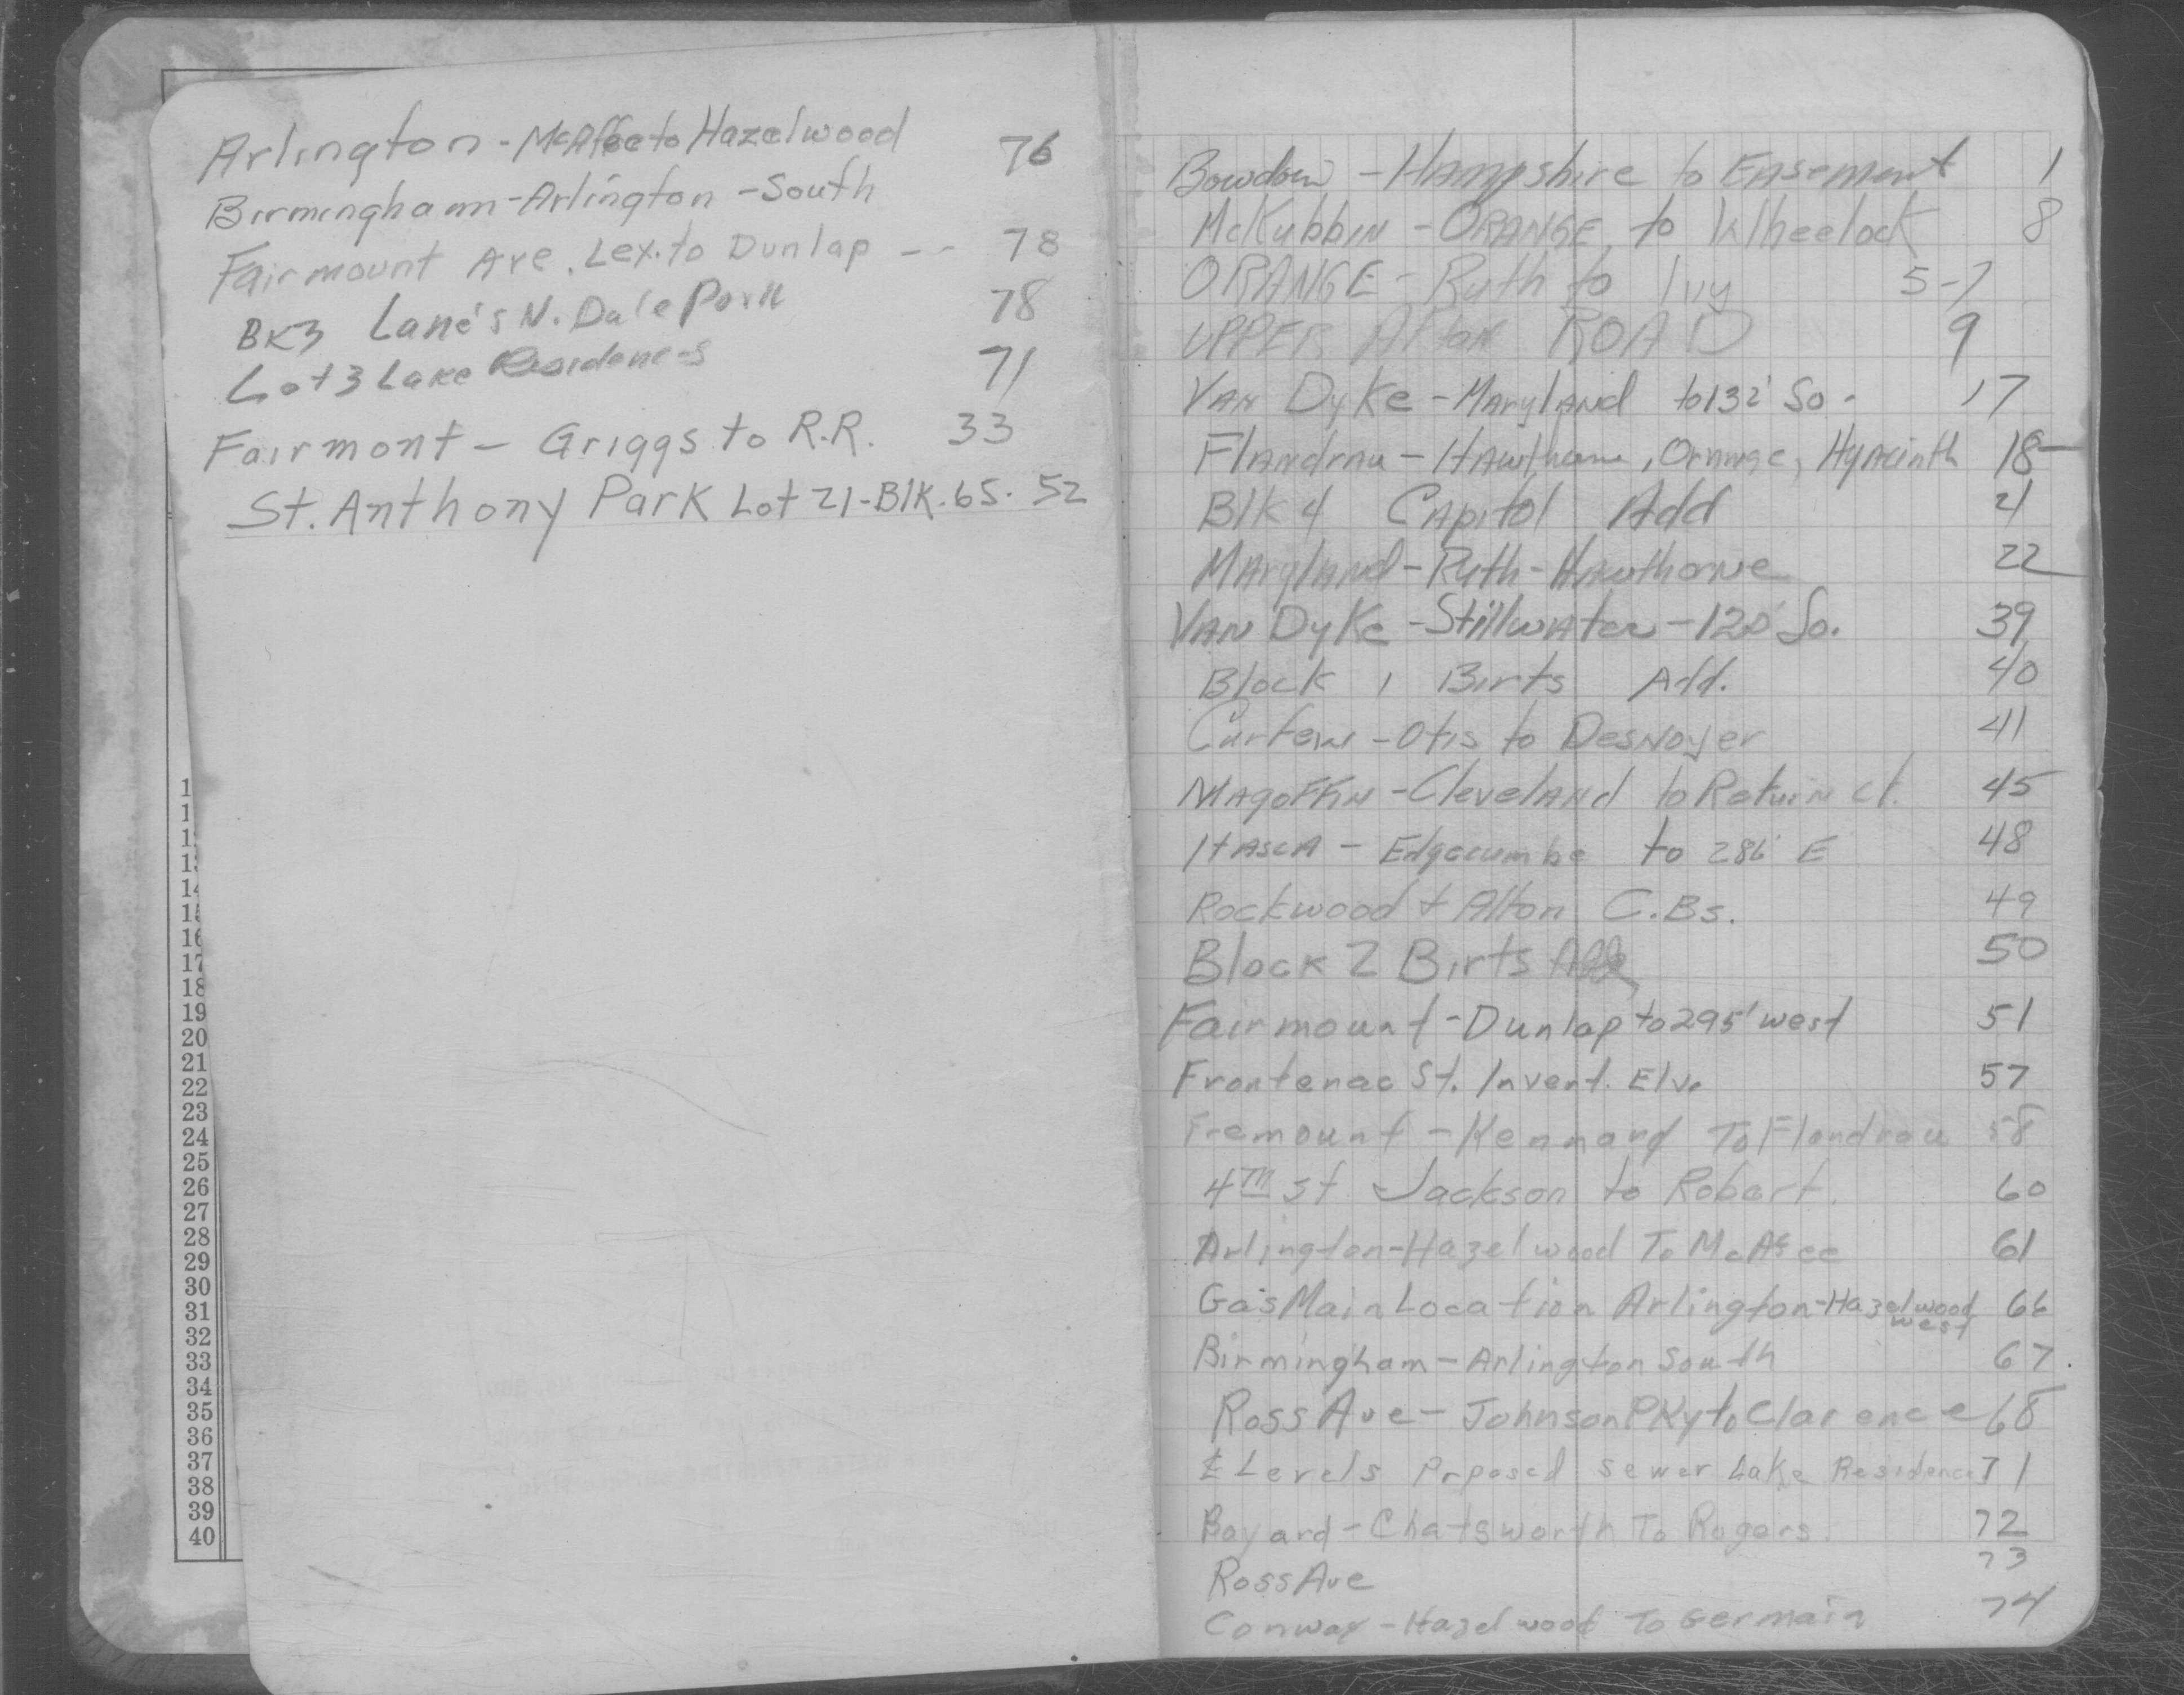 Arlington - McAfee to Hazelwood 76
Birmingham - Arlington - South
Fairmount Ave. Lex. to Dunlap -- 78
BK3 Lane's N. Dale Park 78
Lot 3 Lake Residences 71
Fairmont - Griggs to R.R. 33
St. Anthony Park Lot 21 - Blk. 65. 52
1
1
1
1
14
15
16
17
18
19
20
21
22
23
24
25
26
27
28
29
30
31
32
33
34
35
36
37
38
39
40
Bowdoin - Hampshire to Easement 1
McKubbin - ORANGE to Wheelock 8
ORANGE - Ruth to Ivy 5-7
UPPER Afton ROAD 9
Van Dyke - Maryland to 132' So. 17
Flandrau - Hawthorne, Orange, Hyacinth 18
Blk 4 Capitol Add 21
Maryland - Ruth - Hawthorne 22
Van Dyke - Stillwater - 120' So. 39
Block 1 Birts Add. 40
Curfew - Otis to Desnoyer 41
Magoffin - Cleveland to Return Ct. 45
Itasca - Edgecumbe to 286' E 48
Rockwood + Alton C.Bs. 49
Block 2 Birts 50
Fairmount - Dunlap to 295' west 51
Frontenac St. Invert. Elv. 57
Fremount - Kennard To Flandrau 58
4TH St Jackson to Robert. 60
Arlington - Hazelwood To McAfee 61
Gas Main Location Arlington - Hazelwood west 66
Birmingham - Arlington South 67
Ross Ave - Johnson PKy to Clarence 68
Levels Prposed Sewer Lake Residence 71
Bayard - Chatsworth To Rogers. 72
Ross Ave 73
Conway - Hazelwood To Germain 74